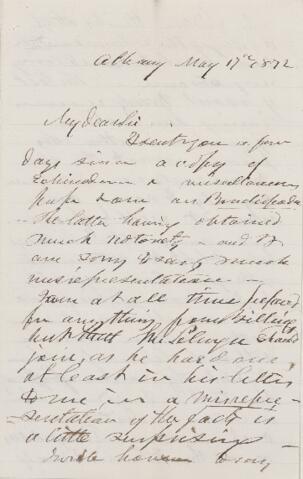 Albany May 17th 1872
My dear Sir
I sent you a few
days since a copy of
& miscellaneous
The latter having obtained
much notoriety - and I
am sorry to say much
misrepresentation -
I am at all time prepared
for anything from
but that should
join, as he has done
at least in his letter
to me in a misrepre-
sentation of the facts is
a little surprising -
to say